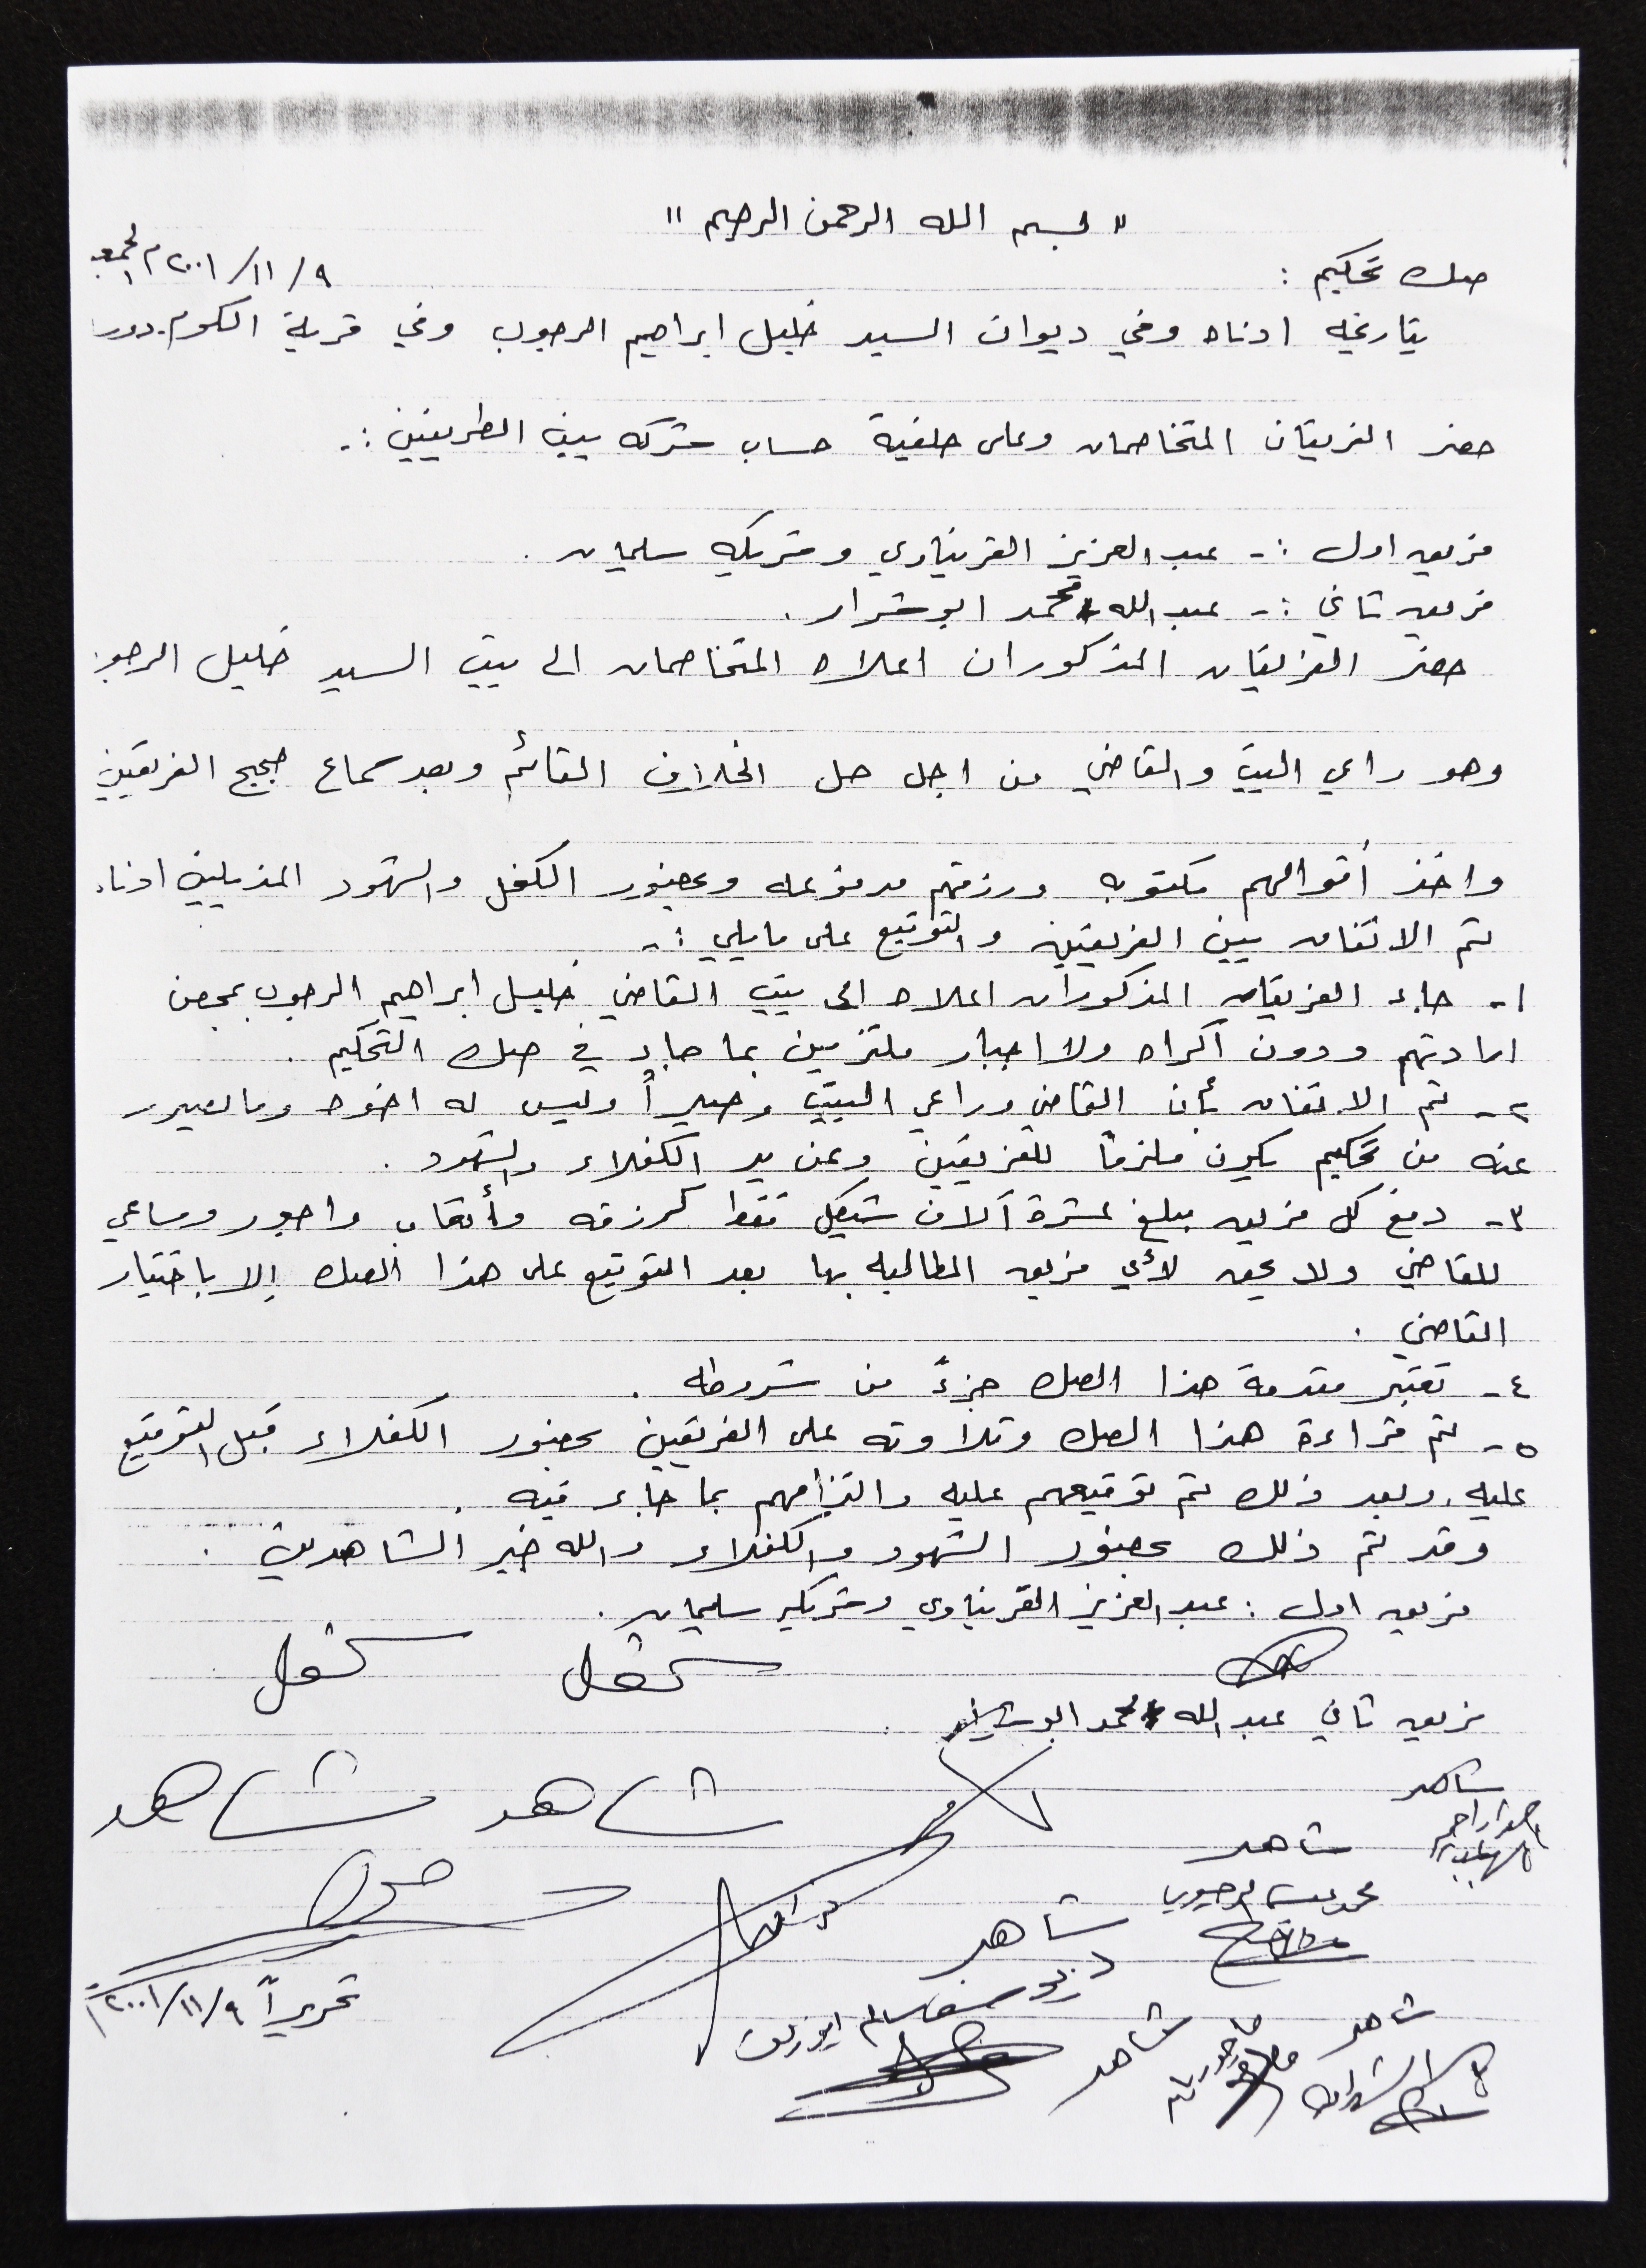 " بسم الله الرحمن الرحيم "
صك تحكيم : ٩/١١/٢٠٠١م الجمعة
بتاريخه ادناه وفي ديوان السيد خليل ابراهيم الرجوب وفي قرية الكوم.دورا
حضر الفريقان المتخاصمان وعلى خلفية حساب شركه بين الطرفين :-
فريق اول :- عبد العزيز القريناوي وشريكه سليمان .
فريق ثاني :- عبد الله محمد ابو شرار .
حضر الفريقان المذكوران اعلاه المتخاصمان الى بيت السيد خليل الرجوب
وهو راعي البيت والقاضي من اجل حل الخلاف القائم وبعد سماع حجج الفريقين
واخذ أقوالهم مكتوبه ورزقهم مدفوعه وبحضور الكفل والشهود المذيلين ادناه
تم الاتفاق بين الفريقين والتوقيع على مايلي :-
١- جاء الفريقان المذكوران اعلاه الى بيت القاضي خليل ابراهيم الرجوب بمحض
ارادتهم ودون اكراه ولا اجبار ملتزمين بما جاء في صك التحكيم .
٢- تم الاتفاق بأن القاضي وراعي البيت وليس له اخوه وما يصدر
عنه من تحكيم يكون ملزماً للفريقين وعن يد الكفلاء والشهود .
٣- دفع كل فريق مبلغ عشرة آلاف شيكل فقط كرزقه وأتعاب واجور ومساعي
للقاضي ولا يحق لأي فريق المطالبه بها بعد التوقيع على هذا الصك إلا باختيار
القاضي .
٤- تعتبر مقدمة هذا الصك جزءً من شروطه .
٥- تم قراءة هذا الصك وتلاوته على الفريقين بحضور الكفلاء قبل التوقيع
عليه، وبعد ذلك تم توقيعهم عليه والتزامهم بما جاء فيه .
وقد تم ذلك بحضور الشهود والكفلاء والله خير الشاهدين .
فريق اول : عبد العزيز القريناوي وشريكه سليمان .
كفل كفل
فريق ثاني عبد الله محمد ابو شرار
شاهد شاهد شاهد
شاهد
شاهد
تحريراً ٩/١١/٢٠٠١م
شاهد شاهد